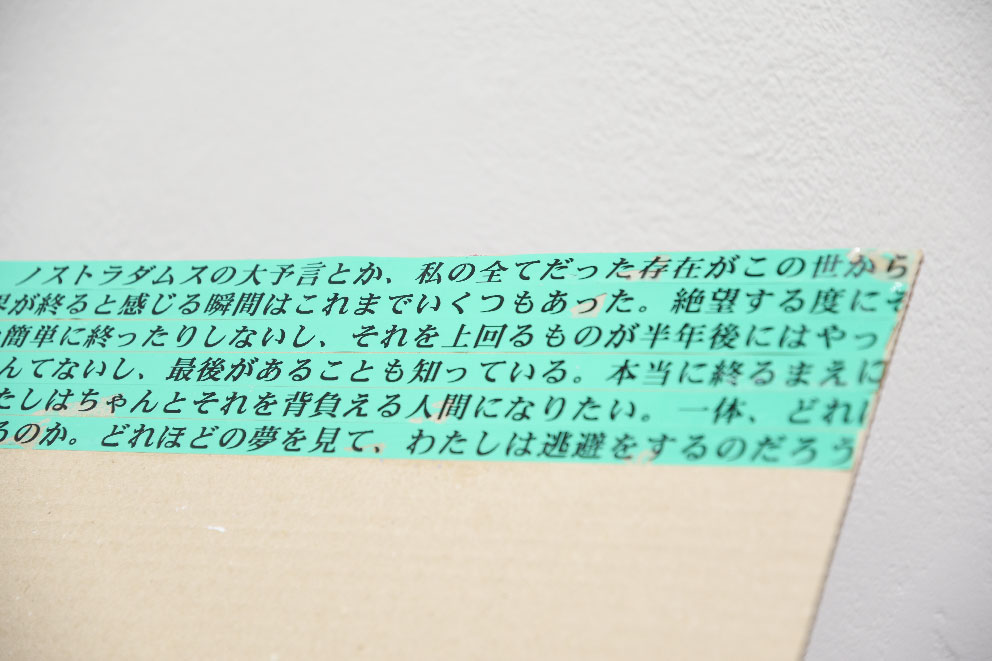 ノストラダムスの大予言とか、私の全てだった存在がこの世から
が終ると感じる瞬間はこれまでいくつもあった。絶望する度にそ
簡単に終ったりしないし、それを上回るものが半年後にはやっ
んてないし、最後があることも知っている。本当に終るまえに
たしはちゃんとそれを背負える人間になりたい。一体、どれ
るのか。どれほどの夢を見て、わたしは逃避をするのだろう